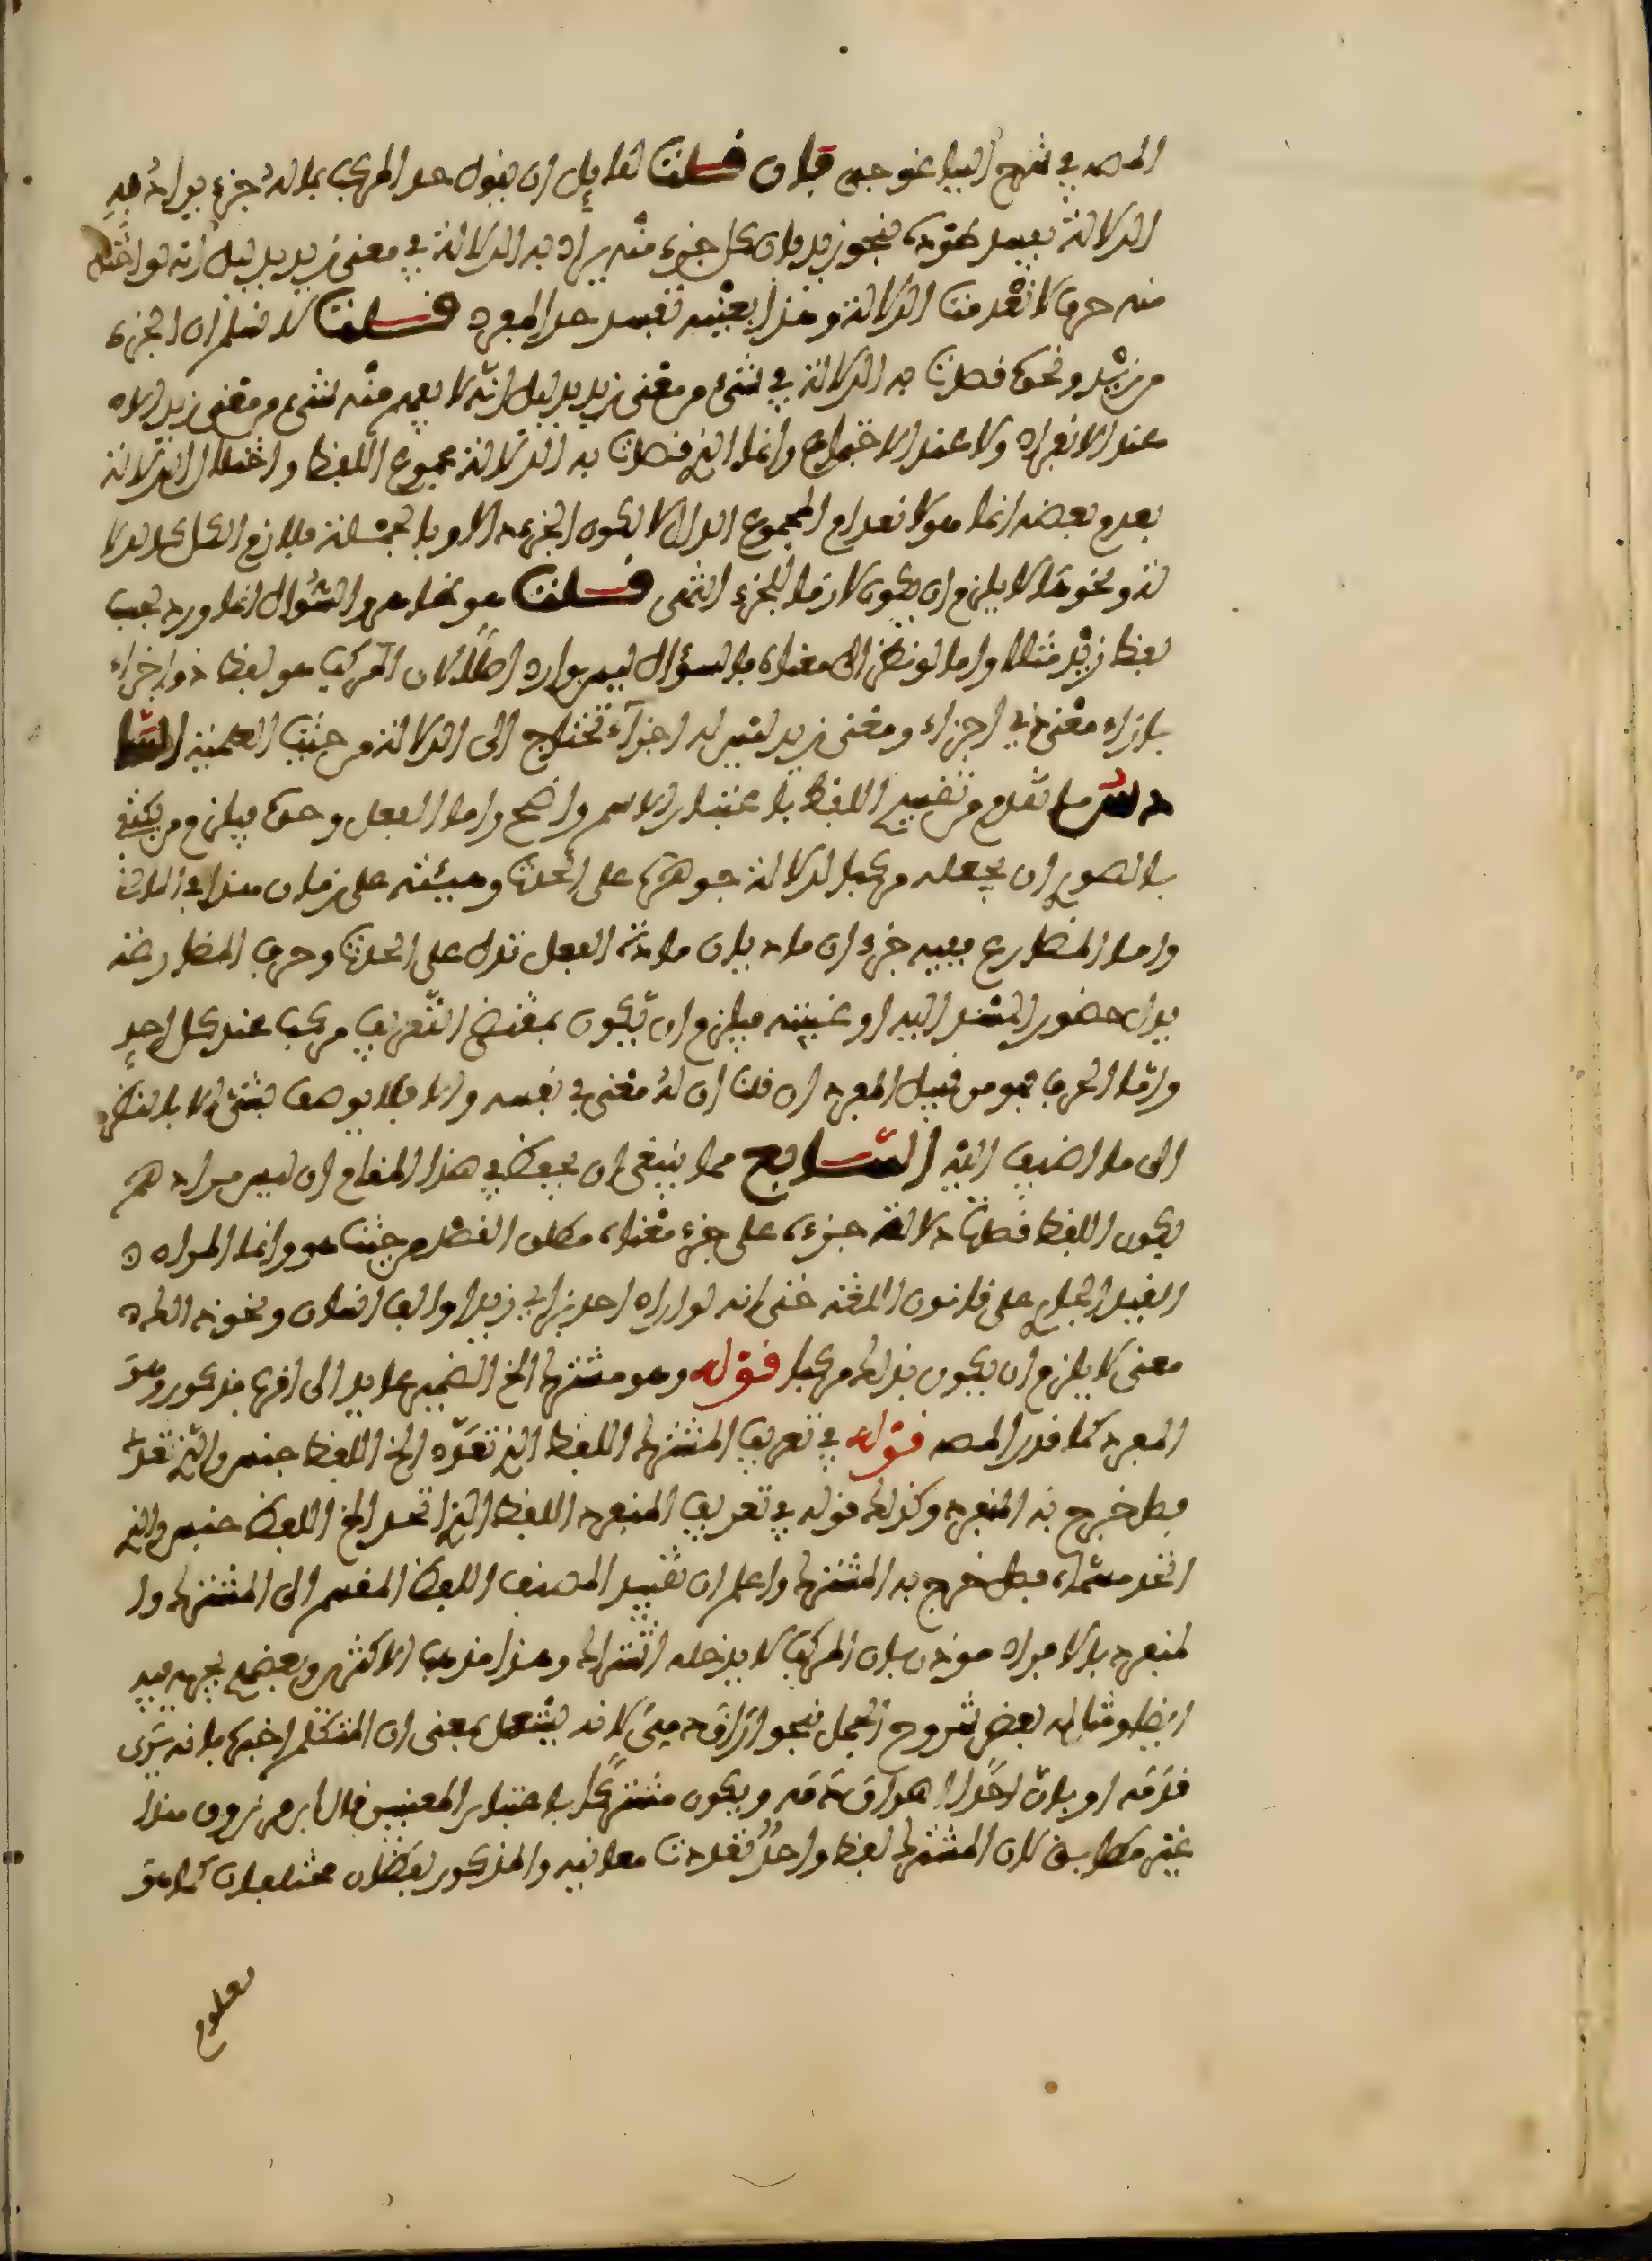 المص في شرح ايساغوجي فإن قلت لقايل ان يقول حد المركب بما له جزء يراد به
الدلالة يفسد طرده بنحو زيد فان كل جزء منه يراد به الدلالة في معنى زيد بدليل انه لو اختل
منه حرف لانعدمت الدلالة وهذا بعينه يفسد حد المفرد قلت لا نسلم ان الجزء
من زيد ونحوه قصدت به الدلالة في شيء من معنى زيد بدليل انه لا يفهم منه شيء من معنى زيد لا
عند الانفراد ولا عند الاجتماع وانما الذي قصدت به الدلالة مجموع اللفظ واختلال الدلالة
بعدم بعضه انما هو لانعدام المجموع الدال لا لكون الجزء دالا وبالجملة فلازم الكل كالدلا
لة ونحوها لا يلزم ان يكون لازما للجزء انتهى قلت هو ظاهر والسؤال انما ورد بحسب
لفظ زيد مثلا واما لو نظر الى معناه فالسؤال ليس بوارد اصلا لان المركب هو لفظ ذو اجزاء
بازاء معنى ذي اجزاء ومعنى زيد ليس له اجزاء تحتاج الى الدلالة من حيث العلمية السا
دس ما تقدم من تقسيم اللفظ باعتبار الاسم واضح واما الفعل وحده فيلزم من يكتفي
بالصور ان يجعله مركبا لدلالة جوهره على الحدث وهيئته على زمان هذا في الماضي
واما المضارع ففيه جزءان ماديان مادة الفعل تدل على الحدث وحرف المضارعة
يدل حضور المسند اليه او غيبته فيلزم ان يكون بمقتضى التعريف مركب عند كل احد
واما الحرف فهو من قبيل المفرد ان قلنا ان له معنى في نفسه والا فلا يوصف بشيء الا بالنظر
الى ما اضيف اليه السابع مما ينبغي ان يحفظ في هذا المقام ان ليس مرادهم
بكون اللفظ قصدت دلالة جزءه على جزء معناه مطلق القصد من حيث هو وانما المراد
القصد الجاري على قانون اللغة حتى انه لو اراد احد بزاي زيد او الف انسان ونحو ذلك
معنى لا يلزم ان يكون بذلك مركبا قوله وهو مشترك الخ الضمير عايد الى اقرب مذكور وهو
المفرد كما قدر المص قوله في تعريف المشترك اللفظ الذي تعدد الخ اللفظ جنس والذي تعدد
فصل خرج به المنفرد وكذلك قوله في تعريف المنفرد اللفظ الذي اتحد الخ اللفظ جنس والذي
اتحد مسماه فصل خرج به المشترك واعلم ان تقييد المصنف اللفظ المقسم الى المشترك وا
لمنفرد بالافراد موذن بان المركب لا يدخله اشتراك وهذا مذهب الاكثر وبعضهم يجريه فيه
ايضا ومثاله بعض شروح الجمل نحو اراق دمي لانه يستعمل بمعنى ان المتكلم اخبر بانه يرى
قدمه او بان احدا اهراق دمه ويكون مشتركا باعتبار المعنيين قال ابن مرزوق هذا
غير مطابق لان المشترك لفظ واحد تعددت معانيه والمذكور لفظان مختلفان كما هو
معلوم